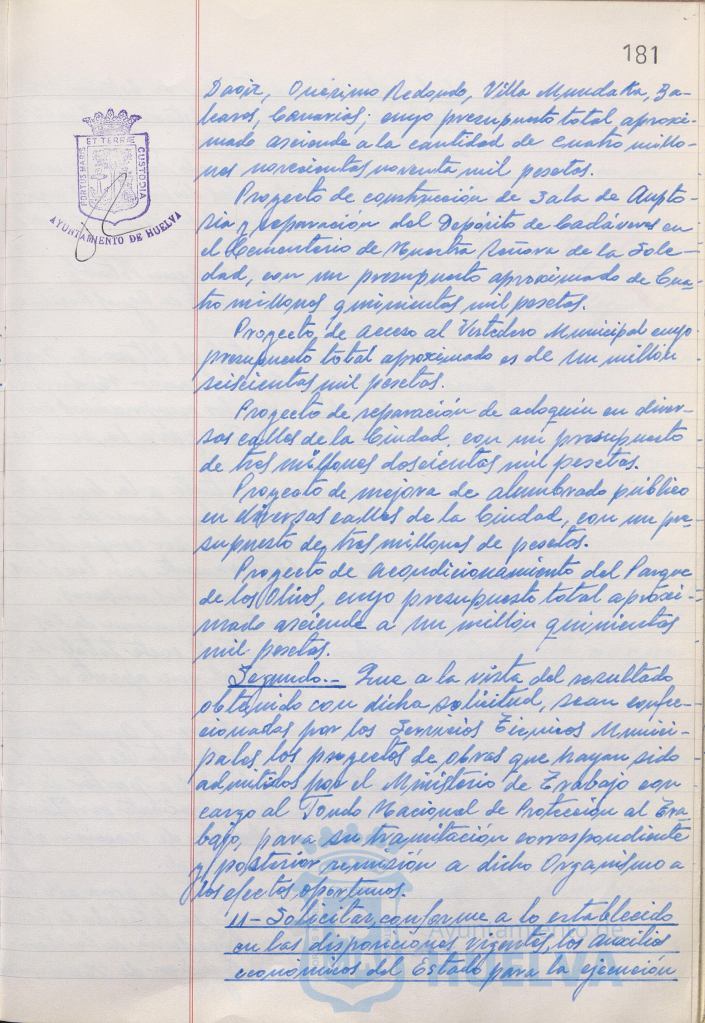 181
Daoiz, Onésimo Redondo, Villa Mundaka, Ba-
leares, Canarias; cuyo presupuesto total aproxi-
mado asciende a la cantidad de cuatro millo-
nes novecientas noventa mil pesetas.
Proyecto de construcción de Sala de Autop-
sia y reparación del Depósito de Cadáveres en
el Cementerio de Nuestra Señora de la Sole-
dad, con un presupuesto aproximado de Cua-
tro millones quinientas mil pesetas.
Proyecto de acceso al Vertedero Municipal cuyo
presupuesto total aproximado es de un millón
seiscientas mil pesetas.
Proyecto de reparación de adoquín en diver-
sas calles de la Ciudad, con un presupuesto
de tres millones doscientas mil pesetas.
Proyecto de mejora de alumbrado público
en diversas calles de la Ciudad, con un pre-
supuesto de tres millones de pesetas.
Proyecto de acondicionamiento del Parque
de los Olivos, cuyo presupuesto total aproxi-
mado asciende a un millón quinientas
mil pesetas.
Segundo.- Que a la vista del resultado
obtenido con dicha solicitud, sean confec-
cionados por los Servicios Técnicos Munici-
pales los proyectos de obras que hayan sido
admitidos por el Ministerio de Trabajo con
cargo al Fondo Nacional de Protección al Tra-
bajo, para su tramitación correspondiente
y posterior remisión a dicho Organismo a
los efectos oportunos.
11- Solicitar, conforme a lo establecido
en las disposiciones vigentes, los Auxilios
económicos del Estado para la ejecución
PORTUS MARIS
ET TERRÆ
CUSTODIA
AYUNTAMIENTO DE HUELVA
Ayuntamiento de
HUELVA